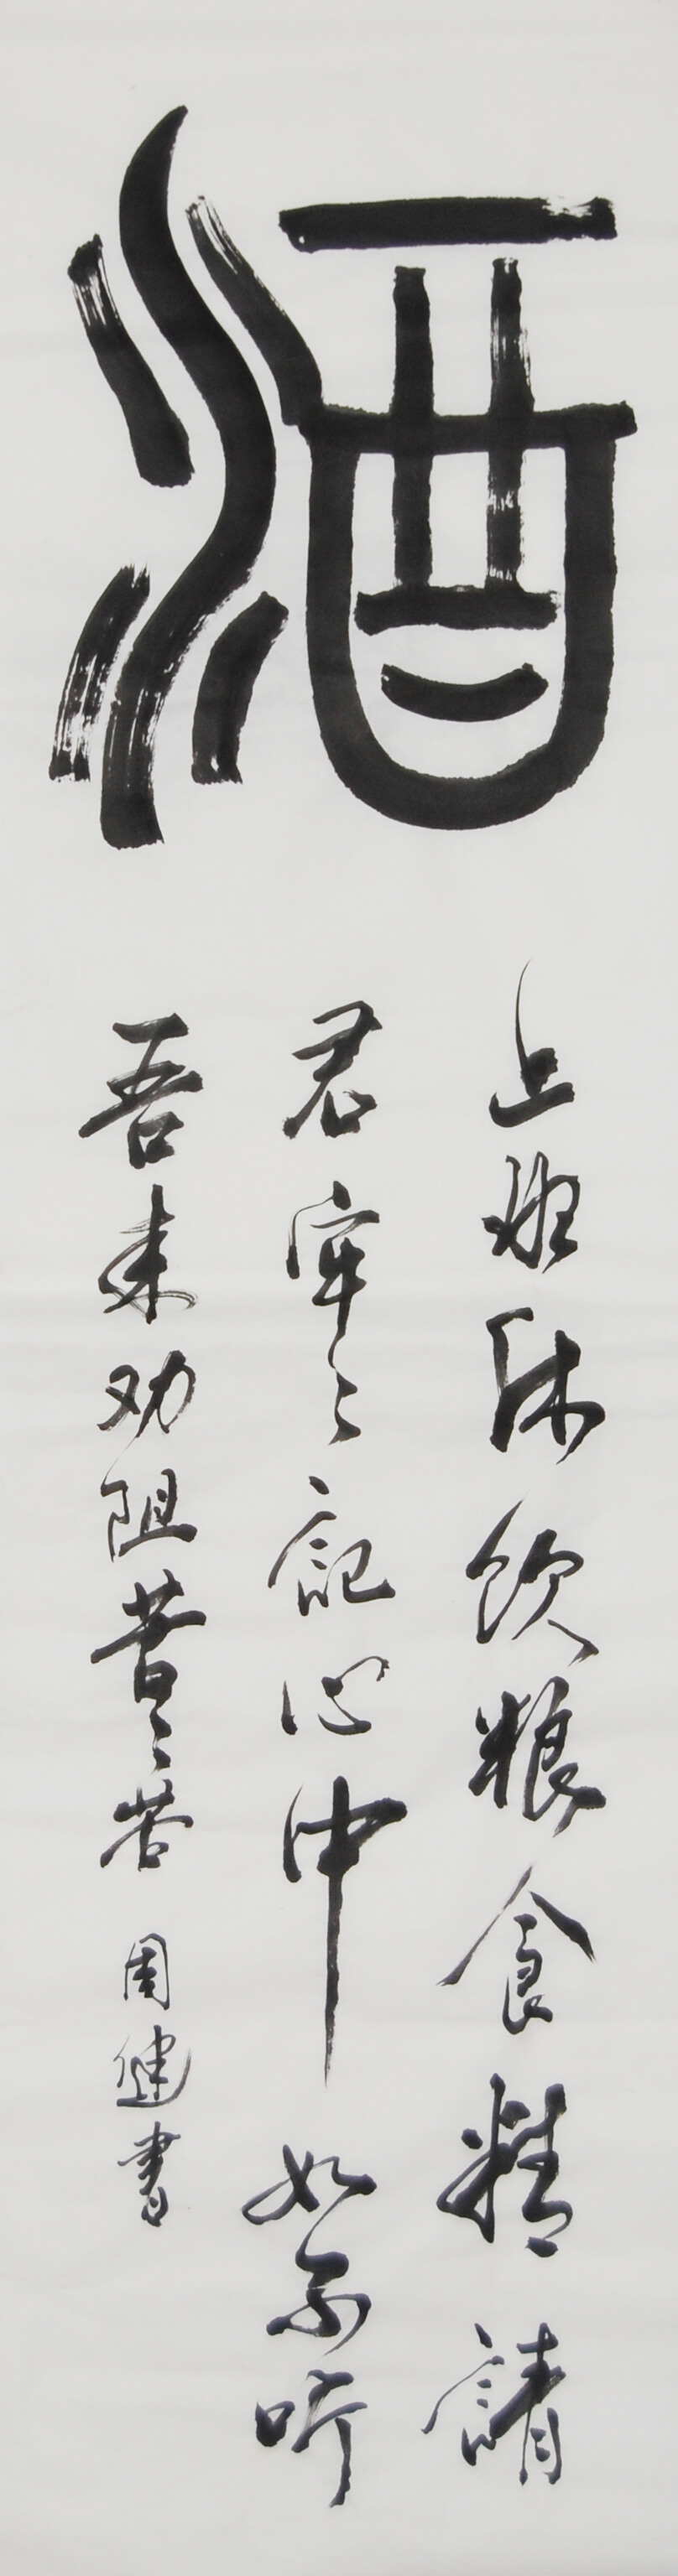 酒
上班休饮粮食精請
君牢々記心中如不听
吾来劝阻苦々苦
周健書